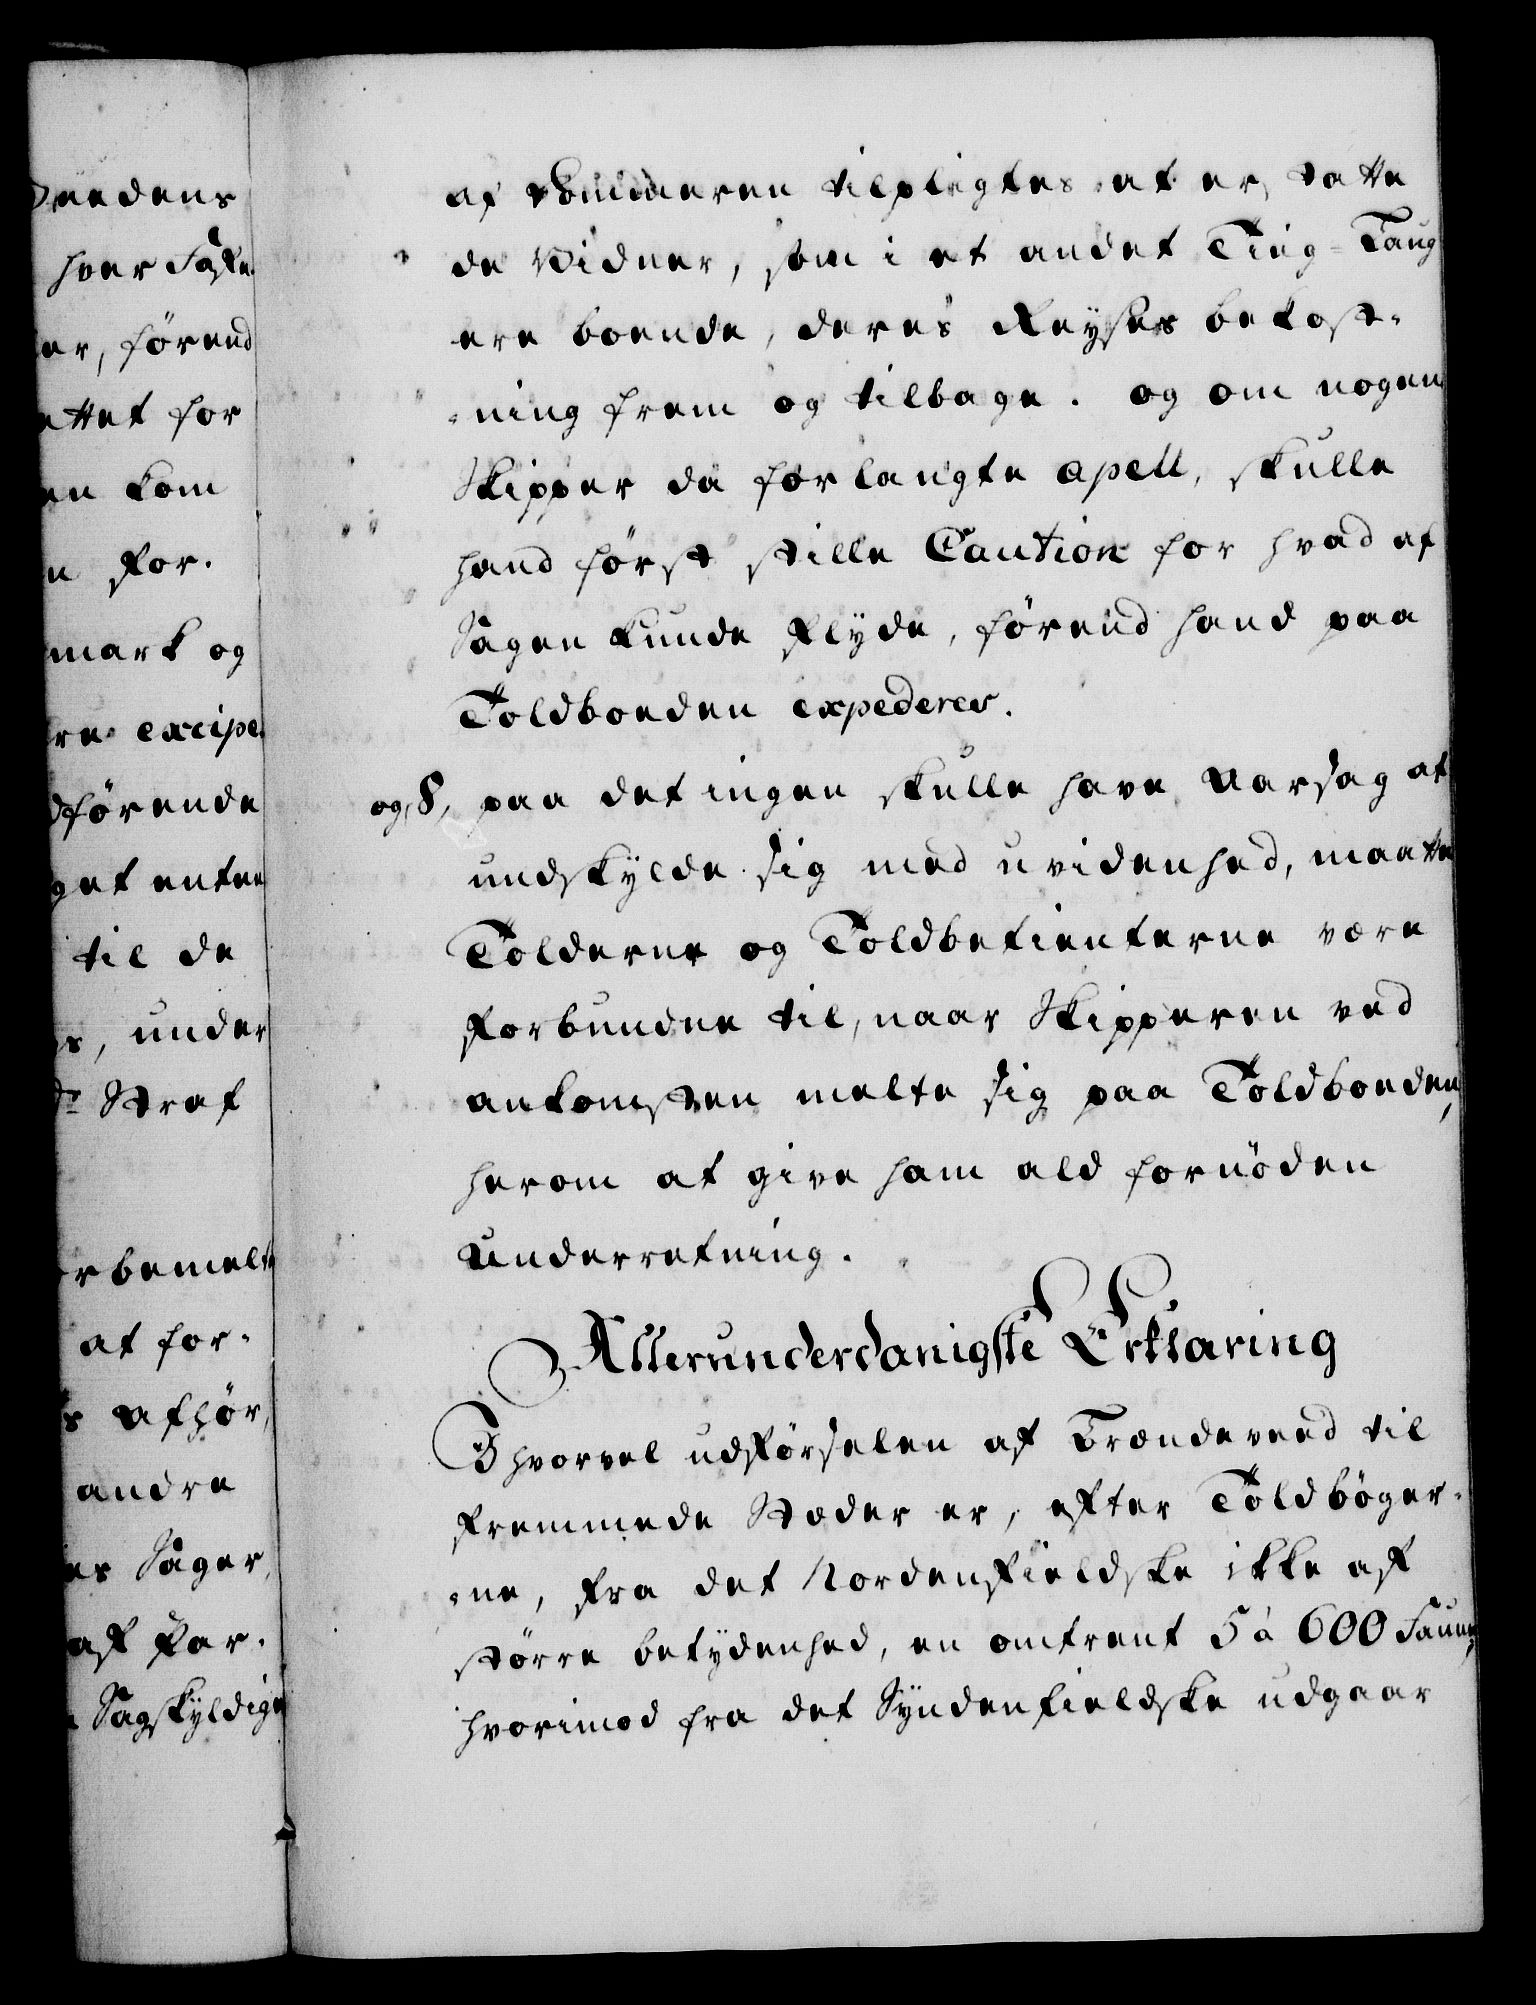 veedens
hver Faste
er, førend
ettet for
en kom
n for-
mark og
re excipe
dførende
get enten
til de
s, under
Straf
rbemelte
at for-
s afhør,
andre
es Sager,
af For-
Sagskyldige
af Dommeren tilpligtes at erstatte
de Vidner, som i et andet Ting-Laug
ere boende, deres Reyses bekost-
-ning frem og tilbage. og om nogen
Skipper da forlangte apell, skulle
hand først stille Caution for hvad af
Sagen kunde flyde, førend hand paa
Toldboeden expederes.
og 8, paa det ingen skulle have Aarsag at
undskylde sig med uvidenhed, maatte
Tolderne og Toldbetienterne være
forbundne til, naar Skipperen ved
ankomsten melte sig paa Toldboeden,
herom at give ham ald fornøden
Underretning.
Allerunderdanigste Erklaring
Ihvorvel udførselen af Brændeveed til
fremmede Stæder er, efter Toldbøger-
-ne, fra det Nordenfieldske ikke af
større betydenhed, en omtrent 5 à 600 Faune,
hvorimod fra det Syndenfieldske udgaar